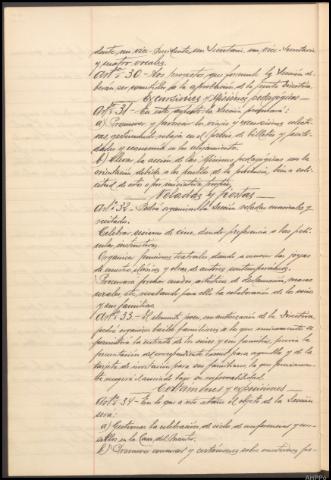 dente, un vice-Presidente, un Secretario, un vice-Secretario
y cuatro vocales.
Artº 30 - Los proyectos, que formule la Sección de-
berán ser sometidos a la aprobación de la Junta Directiva.
Excursiones y Misiones pedagógicas
Artº 31 - En este aspecto la Sección procurará:
a) Promover y fomentar los viajes y excursiones colecti-
vas, gestionando rebaja en el precio de billetes y facili-
dades y economía en los alojamientos.
b) Llevar la acción de las Misiones pedagógicas con la
orientación debida a los pueblos de la provincia, bien a soli-
citud de estos o por iniciativa propia.
Veladas y Fiestas
Artº 32 - Podrá organizar la Sección veladas musicales y
recitados.
Celebrar sesiones de cine, dando preferencia a las pelí-
culas instructivas.
Organizar funciones teatrales dando a conocer las joyas
de nuestros clásicos y obras de autores contemporáneos.
Procurará formar cuadros artísticos de declamación, masas
corales, etc, recabando para ello la colaboración de los socios
y sus familiares.
Artº 33 - El elemento joven, con autorización de la Directiva
podrá organizar bailes familiares a los que únicamente se
permitirá la entrada de los socios y sus familias, previa la
presentación del correspondiente carnet para aquellos y de la
tarjeta de invitación para sus familiares, la que personalmen-
te recogerá el asociado bajo su responsabilidad.
Certámenes y exposiciones
Artº 34 - En lo que a esto atañe el objeto de la Sección
será:
a) Gestionar la celebración de ciclos de conferencias y cur-
sillos en la Casa del Maestro.
b) Promover concursos y certámenes sobre cuestiones pe-
AHPPo